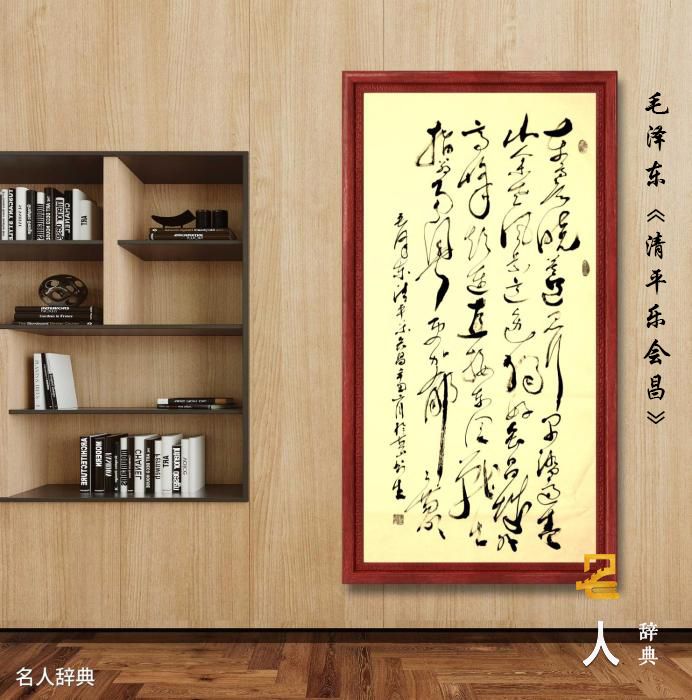 毛泽东《清平乐会昌》
东方欲晓莫道君行早踏遍青
山人未老风景这边独好会昌城外
高峰颠连直接东溟战士
指看南粤更加郁郁葱葱
毛泽东清平乐会昌
CHANEL
CHANEL
名人辞典
名人
辞典